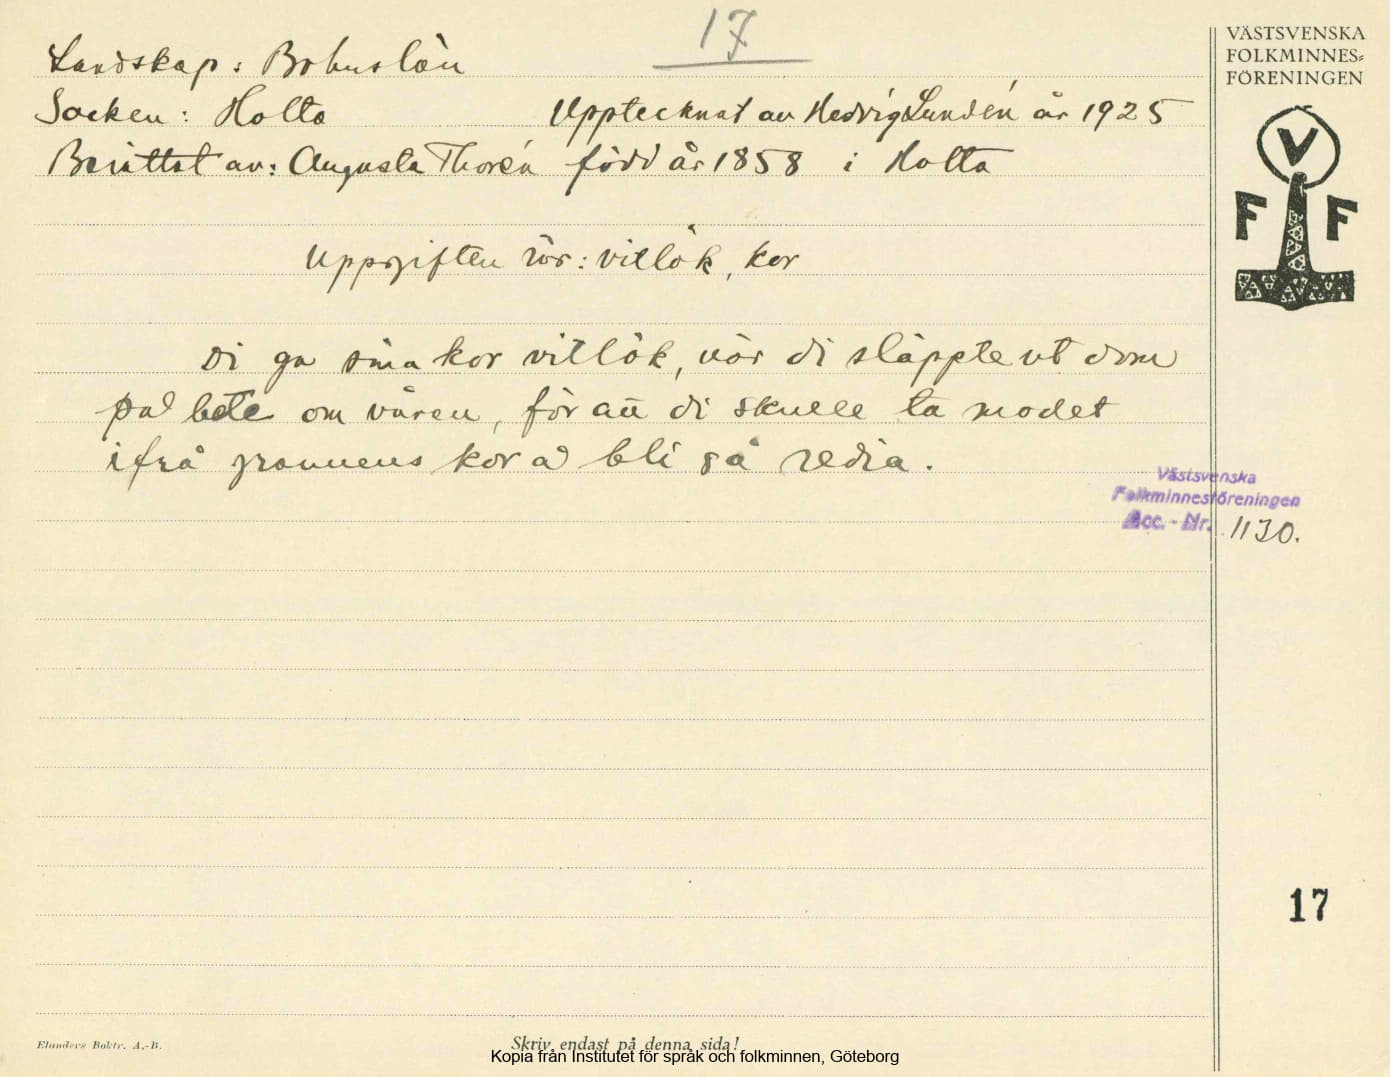 17
VÄSTSVENSKA
FOLKMINNES=
FÖRENINGEN
V
F F
Landskap: Bohuslän
Socken: Holta Upptecknat av Hedvig Lundén år 1925
Berättat av: Augusta Thorén född år 1858 i Holta
Uppgiften rör: vitlök, kor
Di ga sina kor vitlök, når di släppte ut dom
på bete om våren, för att di skulle ta modet
ifrå grannens kor å bli så redia.
Västsvenska
Folkminnesföreningen
Acc. - Nr. 1130.
17
Elanders Boktr. A.-B.
Skriv endast på denna sida!
Kopia från Institutet för språk och folkminnen, Göteborg